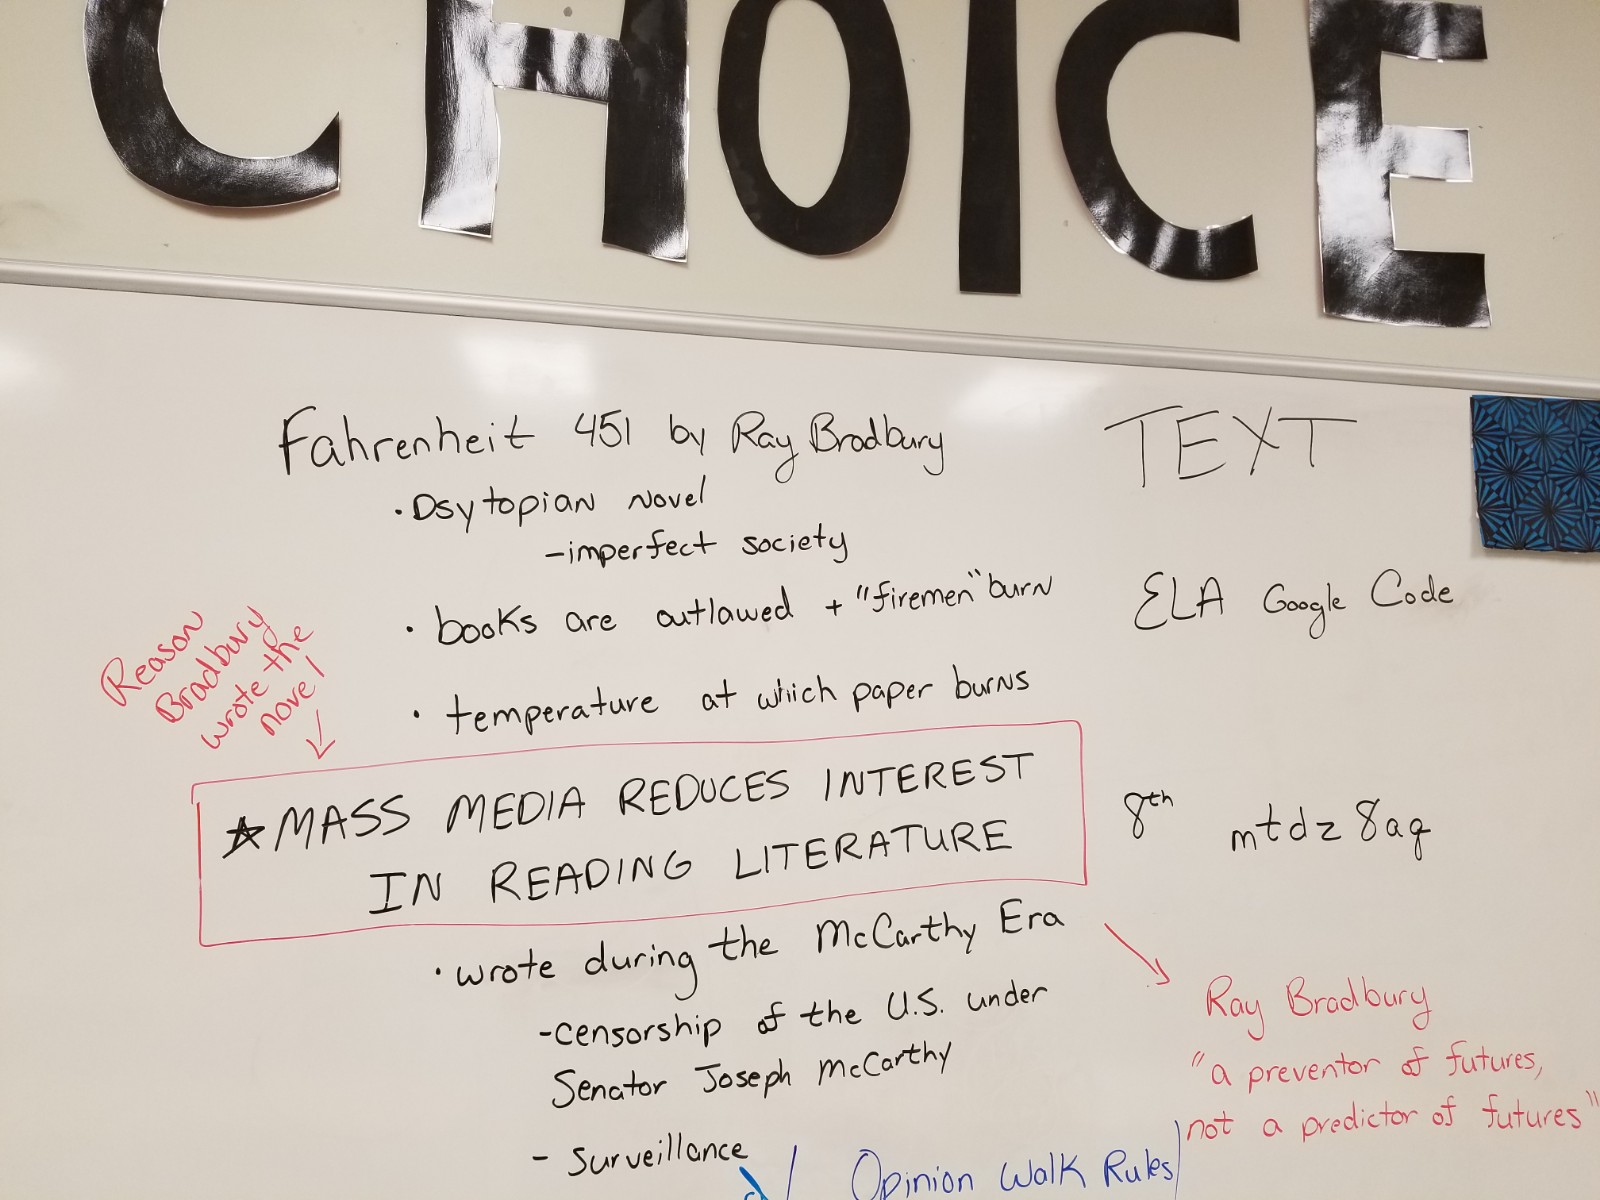 CHOICE
Fahrenheit 451 by Ray Bradbury
• Dsytopian Novel
- imperfect society
• books are outlawed + "firemen" burn
• temperature at which paper burns
Reason
Bradbury
wrote the
novel
★ MASS MEDIA REDUCES INTEREST
IN READING LITERATURE
• wrote during the McCarthy Era
- censorship of the U.S. under
Senator Joseph McCarthy
- Surveillance
TEXT
ELA Google Code
8th mtdz8aq
Ray Bradbury
"a preventor of futures,
not a predictor of futures"
Opinion Walk Rules